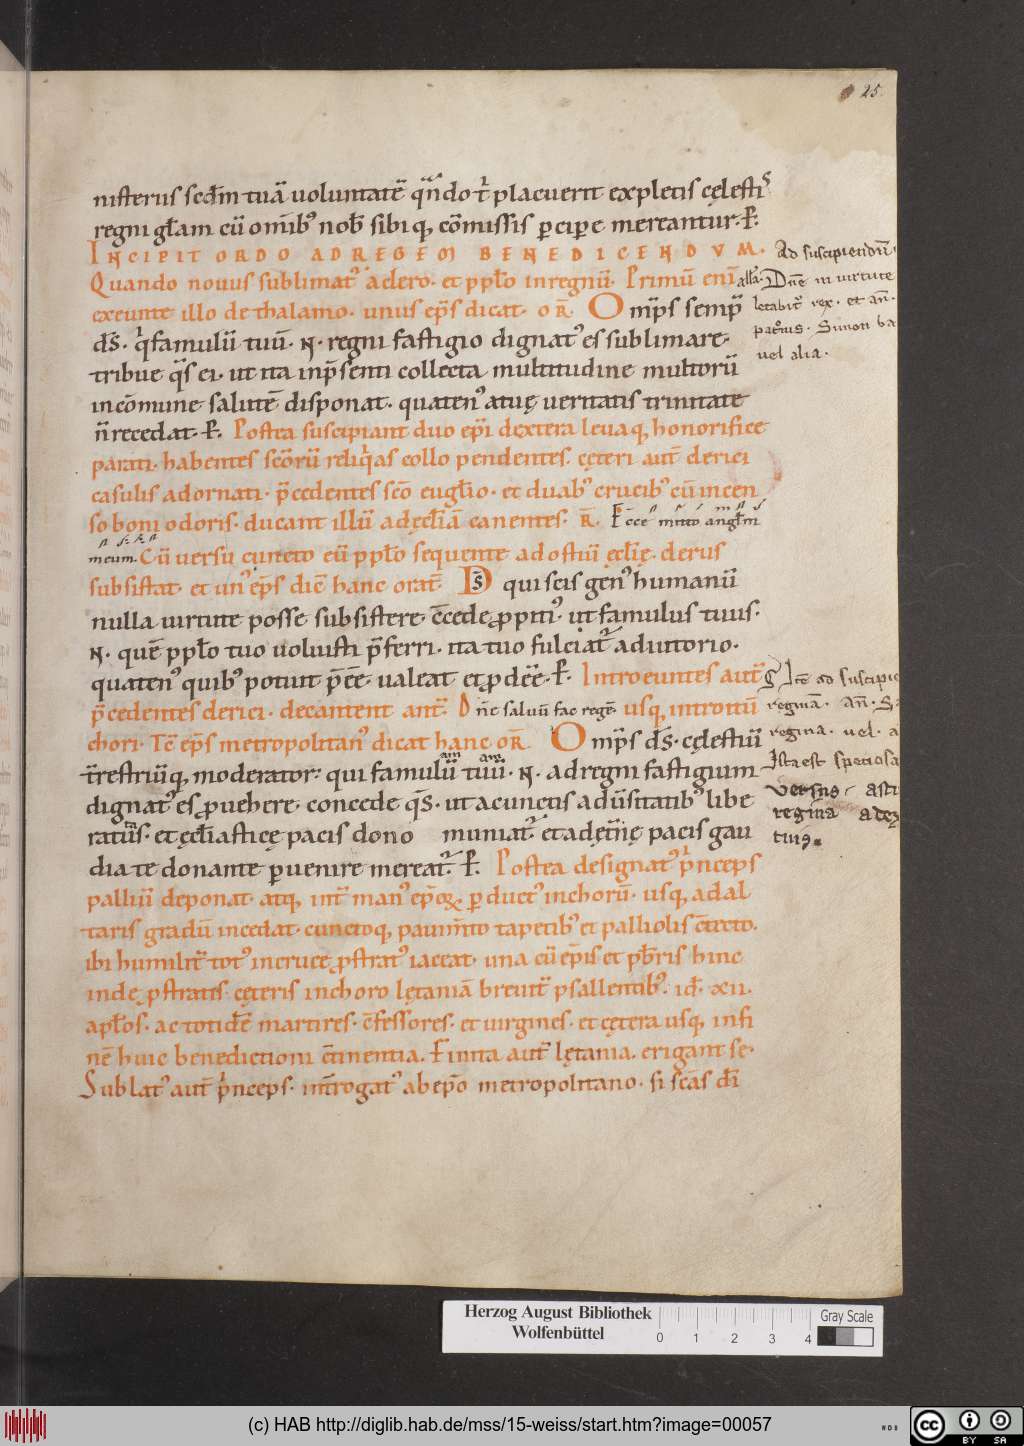 25
nisterus scdm tuā uoluntatē qñdo t̉ placuerit expletis cęlesti
regni glam cū omib; nob sibiq, cōmissis ꝑciꝑe mereantur. P.
INCIPIT ORDO AD REGEM BENEDICENDVM.
Quando nouus sublimat᷑ a clero. et pplo in regnū. Primū eni
exeunte illo de thalamo. unus ep̄s dicat. OR̄. Omp̄s semp̄
d̄s. q̉ famulū tuū. N. regni fastigio dignat᷑ es sublimare.
tribue q̄s ei. ut ita in p̄senti collecta multitudine multorū
in cōmune salutē disponat. quaten᷑ a tuę ueritatis trinitate
n̄ recedat. P. Postea suscipiant duo ep̄i dextera leuaq, honorifice
parati. habentes scōrū reliq̉as collo pendentes. cęteri aut̄ clerici
casulis adornati. p̄cedentes scō euglio. et duab; crucib; cū incen
so boni odoris. ducant illū ad ęcl̄iā canentes. R̄. Ecce mitto anglm
meum. Cū uersu. cuncto eū pplo sequente ad ostiū ęcl̄ię. clerus
subsistat. et un᷑ ep̄s dicē hanc orat̄. Ds̄ qui scis gen᷑ humanū
nulla uirtute posse subsistere. c̄cede ꝓpiti᷑. ut famulus tuus.
N. quē pplo tuo uoluisti p̄ferri. ita tuo fulciat᷑ adiutorio.
quaten᷑ quib; potuit p̄ēē. ualeat et ꝓdēē. P. Introeuntes aut̄
p̄cedentes clerici. decantent ant̄. Dn̄e saluū fac regē. usq, introitū
chori. Tē ep̄s metropolitan᷑ dicat hanc OR̄. Omp̄s d̄s. cęlestiū
t̄restriūq, moderator. qui famulū tuū. N. ad regni fastigium
dignat᷑ es ꝓuehere. concede q̄s. ut a cunctis aduersitatib; libe
ratus. et ęcl̄iasticę pacis dono muniat᷑. et ad ęt̄nę pacis gau
dia te donante ꝑuenire mereat᷑. P. Postea designat᷑ p̉nceps
palliū deponat. atq, int̄ man᷑ ep̄oꝝ. ꝑduct᷑ in chorū. usq, ad al
taris gradū incedat. cunctoq, pauim̄to tapetib; et palliolis c̄tecto.
ibi humilit̄ tot᷑ in cruce ꝓstrat᷑ iaceat. una cū ep̄is et pb̄ris hinc
inde ꝓstratis. cęteris in choro lętaniā breuit̄ psallentib;. id. xii.
aplos. ac totidē martires. c̄fessores. et uirgines. et cętera usq, infi
nē huic benedictioni c̄tinentia. Finita aut̄ lętania. erigant se.
Sublat᷑ aut̄ p̉nceps. int̄rogat᷑ ab epō metropolitano. si scās dī
Ad suscipiendū
alla. Dn̄e in uirtute
letabit᷑ rex. et an̄.
Simon ba
uel alia.
Itē ad suscipie
reginā. An̄.
regina. uel. a
Ista est speciosa
versus
regina
tuus.
Herzog August Bibliothek
Wolfenbüttel
0 1 2 3 4
Gray Scale
(c) HAB http://diglib.hab.de/mss/15-weiss/start.htm?image=00057
cc BY SA